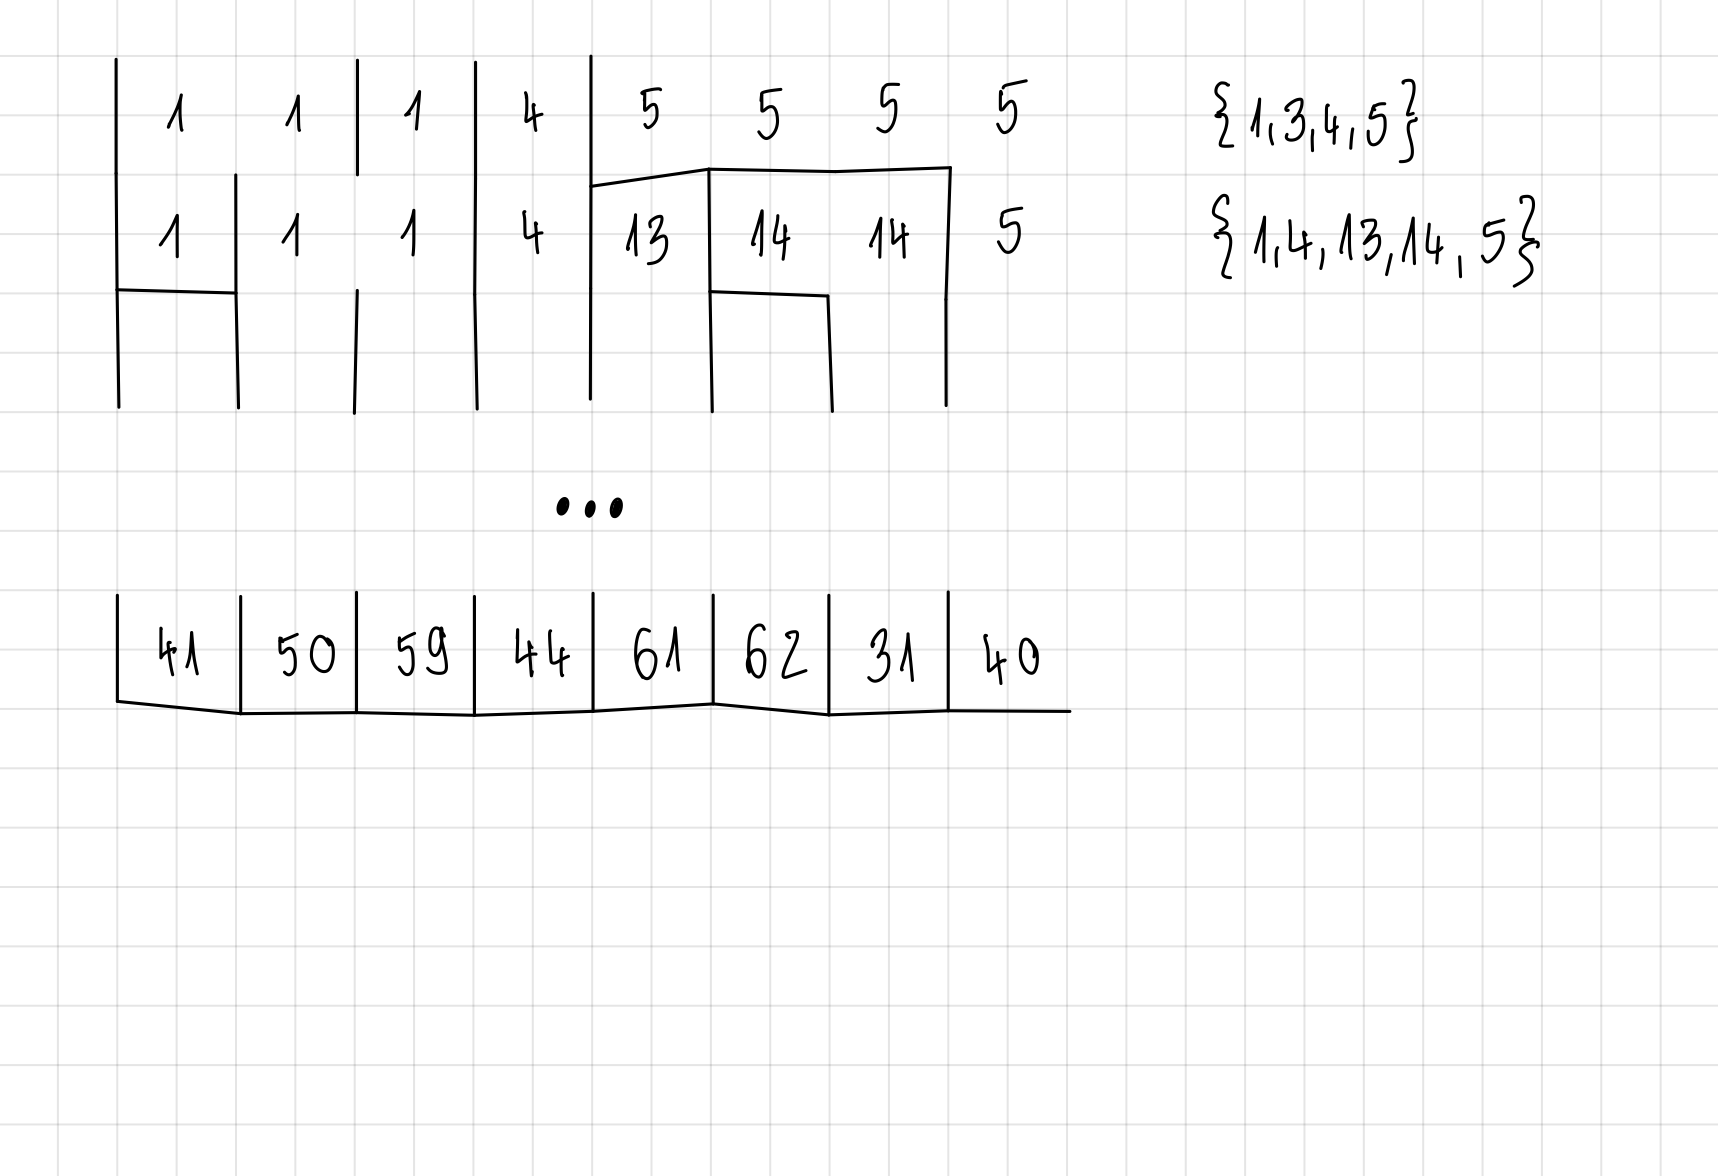 1 1 1 4 5 5 5 5 {1,3,4,5}
1 1 1 4 13 14 14 5 {1,4,13,14,5}
...
41 50 59 44 61 62 31 40